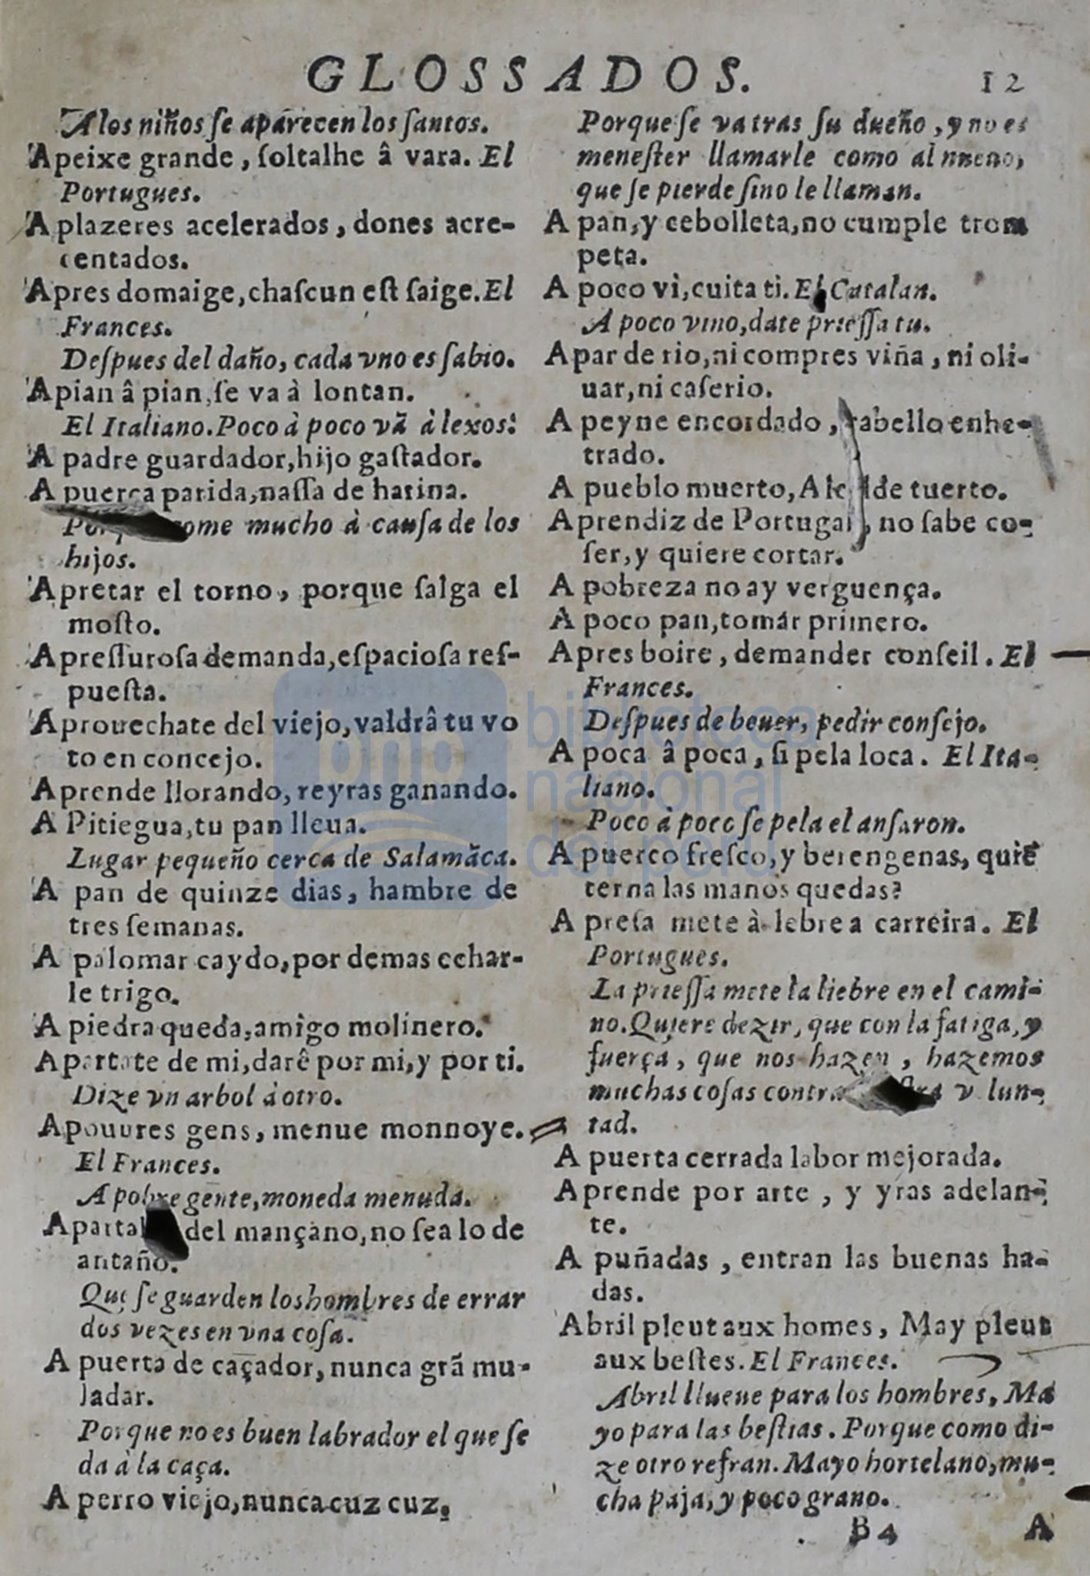 GLOSSADOS. 12
A los niños ſe aparecen los ſantos.
A peixe grande, ſoltalhe â vara. El
Portugues.
A plazeres acelerados, dones acre-
centados.
Apres domaige, chaſcun eſt ſaige. El
Frances.
Deſpues del daño, cada vno es ſabio.
A pian â pian, ſe va à lontan.
El Italiano. Poco à poco vã à lexos.
A padre guardador, hijo gaſtador.
A puerca parida, naſſa de harina.
come mucho à cauſa de los
hijos.
Apretar el torno, porque ſalga el
moſto.
A preſſuroſa demanda, eſpacioſa reſ-
pueſta.
Aprouechate del viejo, valdrâ tu vo
to en concejo.
Aprende llorando, reyras ganando.
A Pitiegua, tu pan lleua.
Lugar pequeño cerca de Salamãca.
A pan de quinze dias, hambre de
tres ſemanas.
A palomar caydo, por demas echar-
le trigo.
A piedra queda, amigo molinero.
Apartate de mi, darê por mi, y por ti.
Dize vn arbol à otro.
A pouures gens, menue monnoye.
El Frances.
A pobre gente, moneda menuda.
del mançano, no ſea lo de
antaño.
Que ſe guarden los hombres de errar
dos vezes en vna coſa.
A puerta de caçador, nunca grã mu-
ladar.
Porque no es buen labrador el que ſe
da à la caça.
A perro viejo, nunca cuz cuz.
Porque ſe va tras ſu dueño, y no es
meneſter llamarle como al nueuo,
que ſe pierde ſino le llaman.
A pan, y cebolleta, no cumple trom
peta.
A poco vi, cuita ti. El Catalan.
A poco vino, date prieſſa tu.
A par de rio, ni compres viña, ni oli-
uar, ni caſerio.
A peyne encordado, cabello enhe-
trado.
A pueblo muerto, Alcalde tuerto.
Aprendiz de Portugal, no ſabe co-
ſer, y quiere cortar.
A pobreza no ay verguença.
A poco pan, tomár primero.
Apres boire, demander conſeil. El
Frances.
Deſpues de beuer, pedir conſejo.
A poca â poca, ſi pela loca. El Ita-
liano.
Poco à poco ſe pela el anſaron.
A puerco freſco, y berengenas, quiẽ
terna las manos quedas?
A preſa mete à lebre a carreira. El
Portugues.
La prieſſa mete la liebre en el cami-
no. Quiere dezir, que con la fatiga, y
fuerça, que nos hazen, hazemos
muchas coſas contra v lun-
tad.
A puerta cerrada labor mejorada.
Aprende por arte, y yras adelan-
te.
A puñadas, entran las buenas ha-
das.
Abril pleut aux homes, May pleut
aux beſtes. El Frances.
Abril llueue para los hombres, Ma
yo para las beſtias. Porque como di-
ze otro refran. Mayo hortelano, mu-
cha paja, y poco grano.
B 4 A
bnp
biblioteca
nacional
del perú